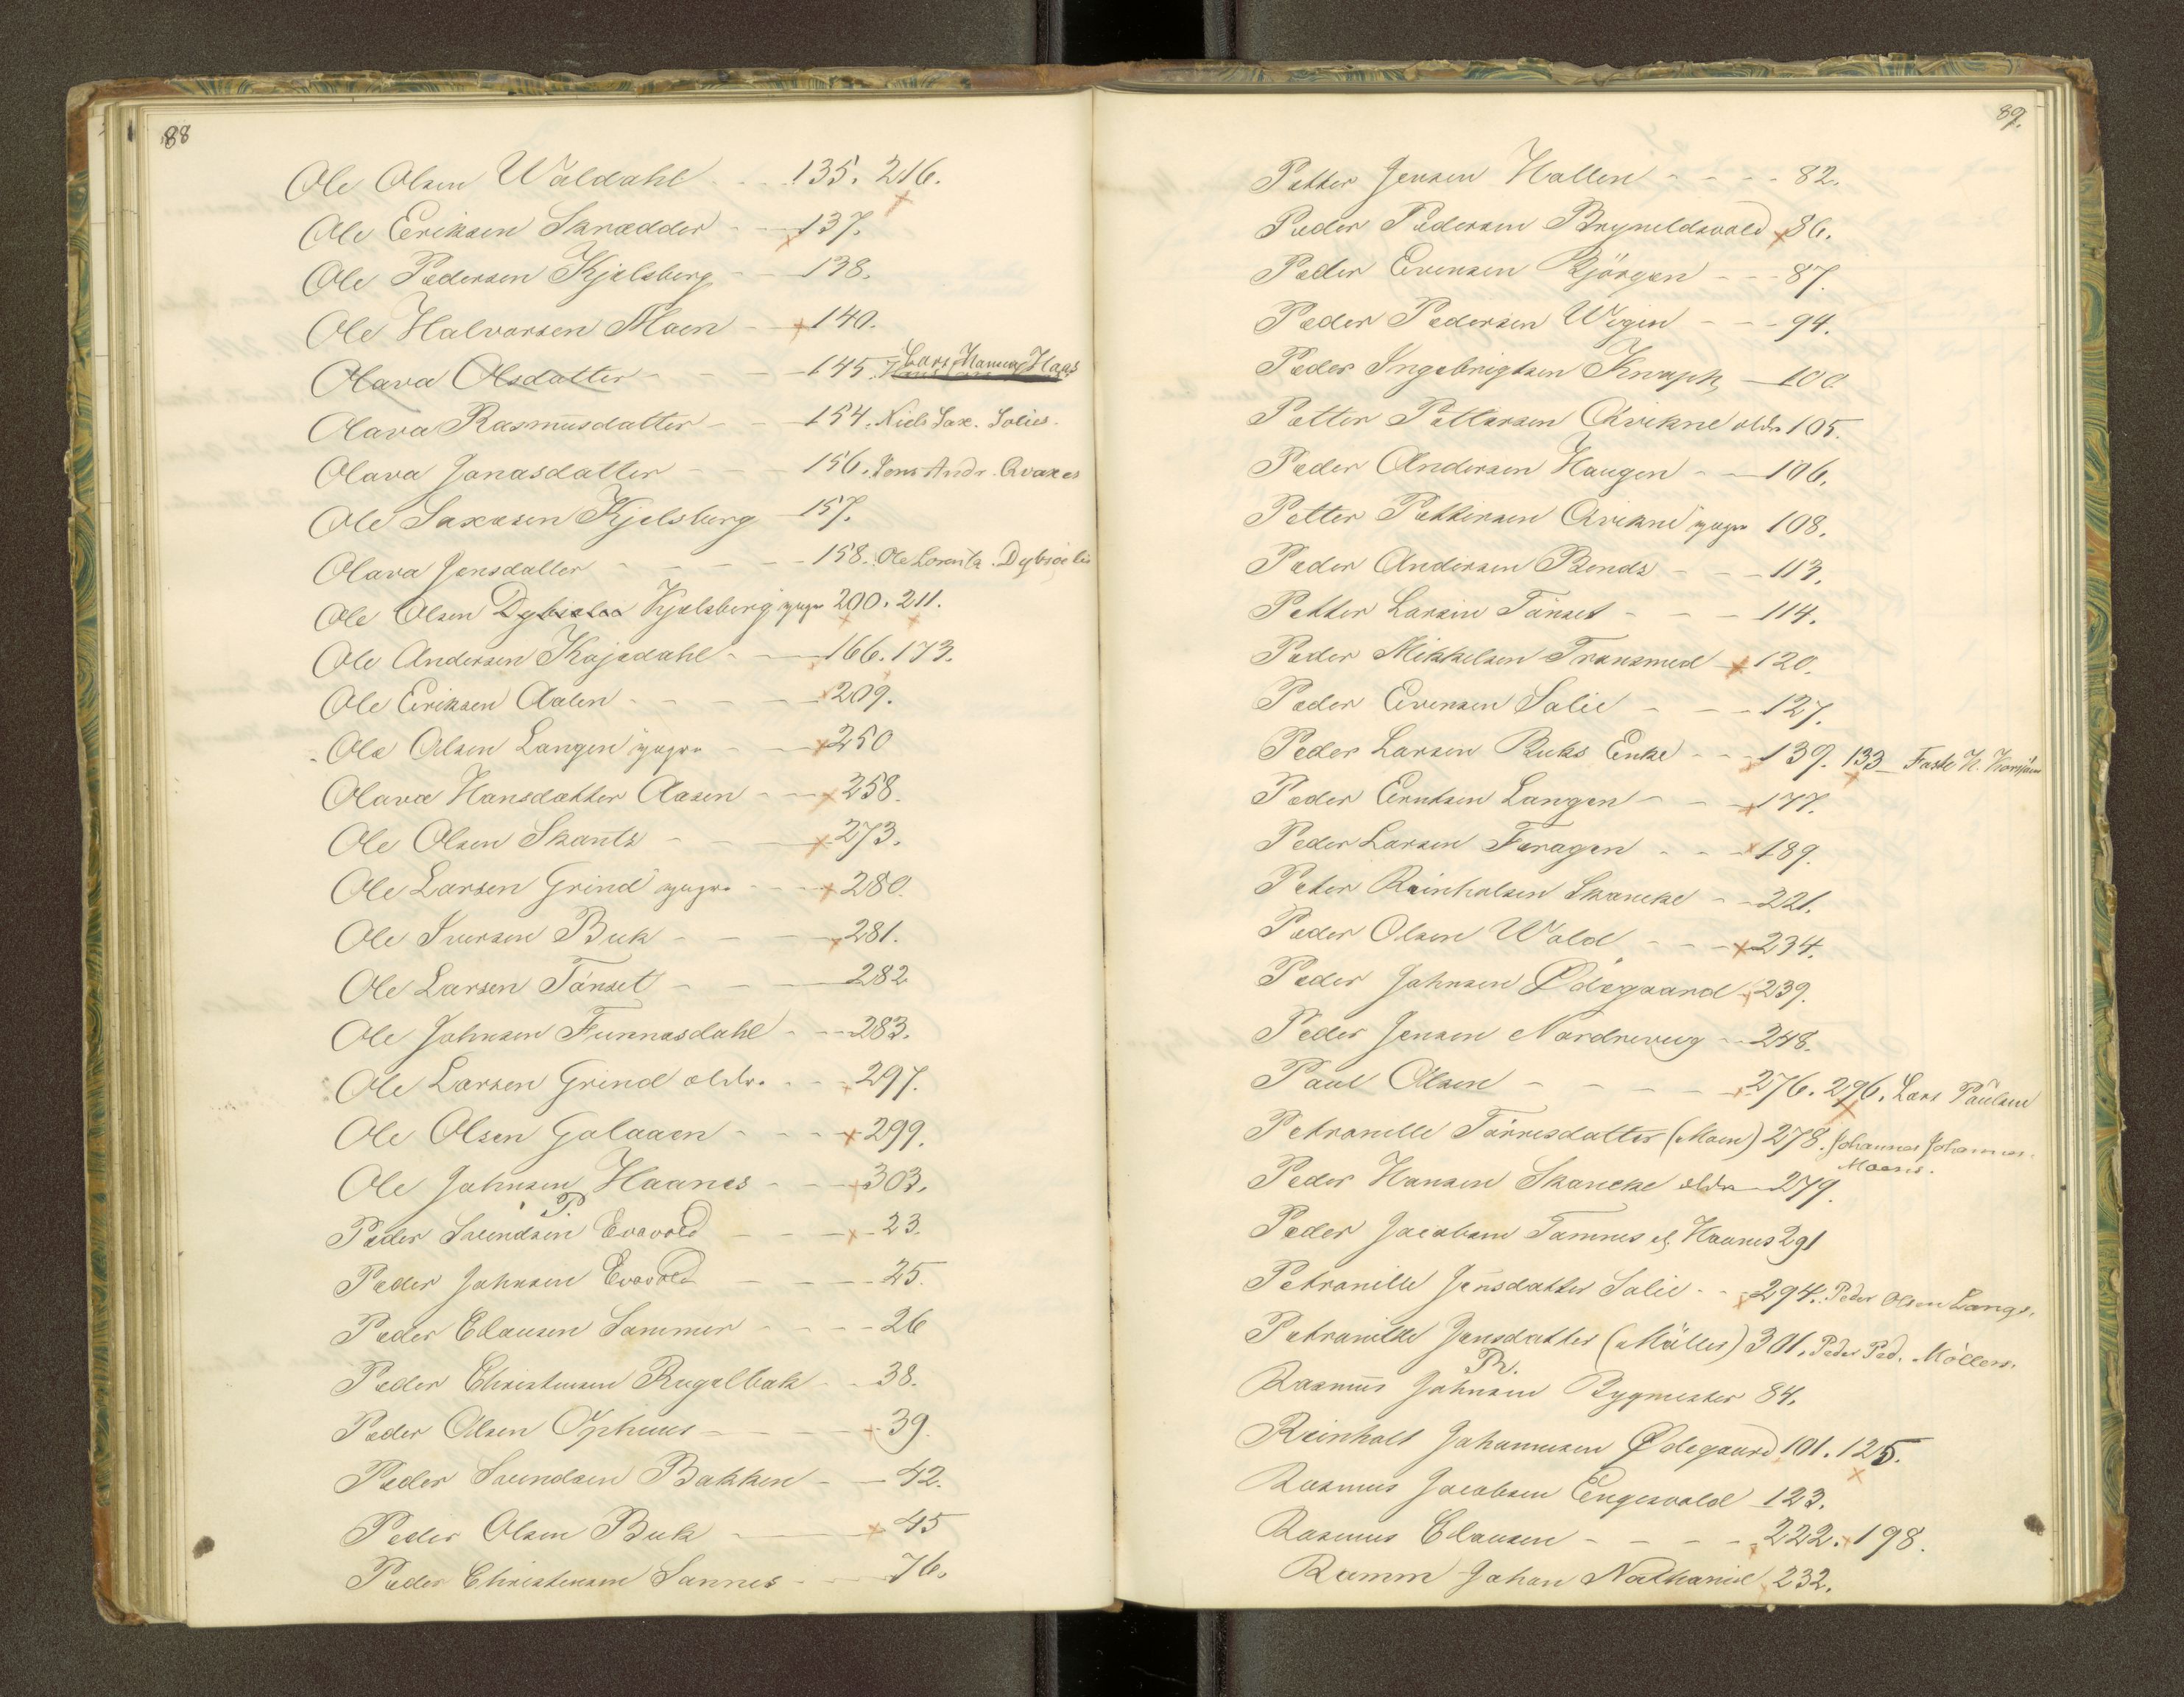 88
Ole Olsen Wäldahl - - - 135. 216.
Ole Eriksen Skrædder - - 137.
Ole Pedersen Kjelsberg - - 138.
Ole Halvorsen Moen - - 140.
Olava Olsdatter - - - 145. Lars Hanns Haas
Olava Rasmusdatter - - 154. Niels Sax. Solies.
Olava Jonasdatter - - - 156. Jens Andr. Qvaxes
Ole Saxesen Kjelsberg 157.
Olava Jensdatter - - - - 158. Ole Lorentz. Dybsoelis
Ole Olsen Kjelsberg yngre 200. 211.
Ole Andersen Kojedahl - - 166. 173.
Ole Eriksen Aalen - - - - 209.
Ole Olsen Langen yngre - - 250
Olava Hansdatter Aasen - - 258.
Ole Olsen Skantz - - - 273.
Ole Larsen Grind yngre - - 280.
Ole Iversen Buk - - - 281.
Ole Larsen Tönset - - - 282
Ole Johnsen Funnasdahl - - 283.
Ole Larsen Grind eldr. - - 297.
Ole Olsen Galaaen - - - 299.
Ole Johnsen Haanes - - 303.
P.
Peder Svendsen Evavold - - - 23.
Peder Johnsen Evavold - - - - 25.
Peder Clausen Sammer - - - - 26
Peder Christensen Rugelbak - - 38.
Peder Olsen Ophuus - - - - 39.
Peder Svendsen Bakken - - 42.
Peder Olsen Buk - - - 45
Peder Christensen Sannes - - 76.
89.
Petter Jensen Hallen - - - - 82.
Peder Pedersen Bryneldsvold 86.
Peder Evensen Bjørgen - - - 87.
Peder Pedersen Wigen - - - 94.
Peder Ingebrigtsen Knuph - 100
Petter Pettersen Qvikne eldr. 105.
Peder Andersen Haugen - - 106.
Petter Pettersen Qvikne yngre 108.
Peder Andersen Bends - - - 113.
Petter Larsen Tönset - - - 114.
Peder Mikkelsen Tronsmed 120.
Peder Evensen Solie - - - 127.
Peder Larsen Buks Enke - - 139. 133 - Faste H.
Peder Erntsen Langen - - - 177.
Peder Larsen Feragen - - - 189.
Peter Reinholsen Skancke - - 221.
Peder Olsen Wold - - - 234.
Peder Johnsen Ødegaard - 239.
Peder Jensen Nordrevug - - 248.
Paul Olsen - - - - - 276. 296. Lars Paulsen
Petronelle Törresdatter (Moen) 278. Johannes Johannes.
Moens.
Peder Hansen Skancke eldr. - 279.
Peder Jacobsen Tamnes el. Haanes 291
Petronille Jensdatter Solie - - 294. Peder Olsen Langs.
Petronille Jensdatter (Möller) 301. Peder Ped. Möllers.
R.
Rasmus Johnsen Bygmester 84.
Reinholt Johannesen Ødegaard 101. 125.
Rasmus Jacobsen Engesvold 123.
Rasmus Clausen - - - - 222. 198.
Ramm Johan Nathaniel 232.